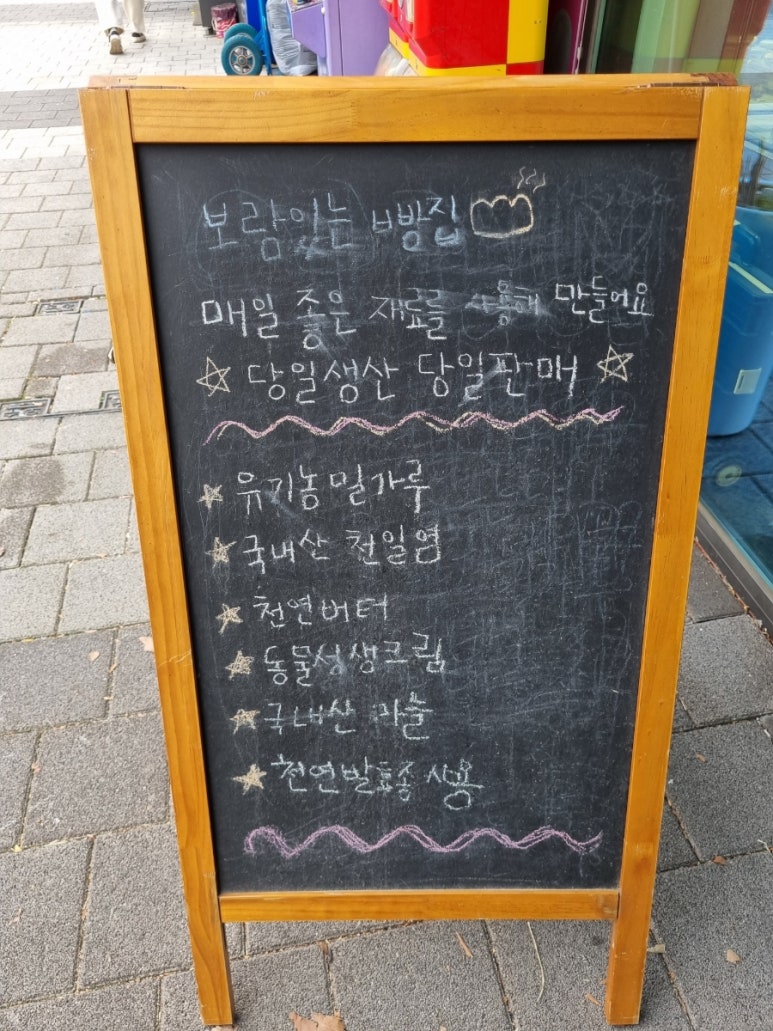 보람있는 빵집
매일 좋은 재료를 사용해 만들어요
☆ 당일생산 당일판매 ☆
☆ 유기농밀가루
☆ 국내산 천일염
☆ 천연버터
☆ 동물성생크림
☆ 국내산 마늘
☆ 천연발효종 사용